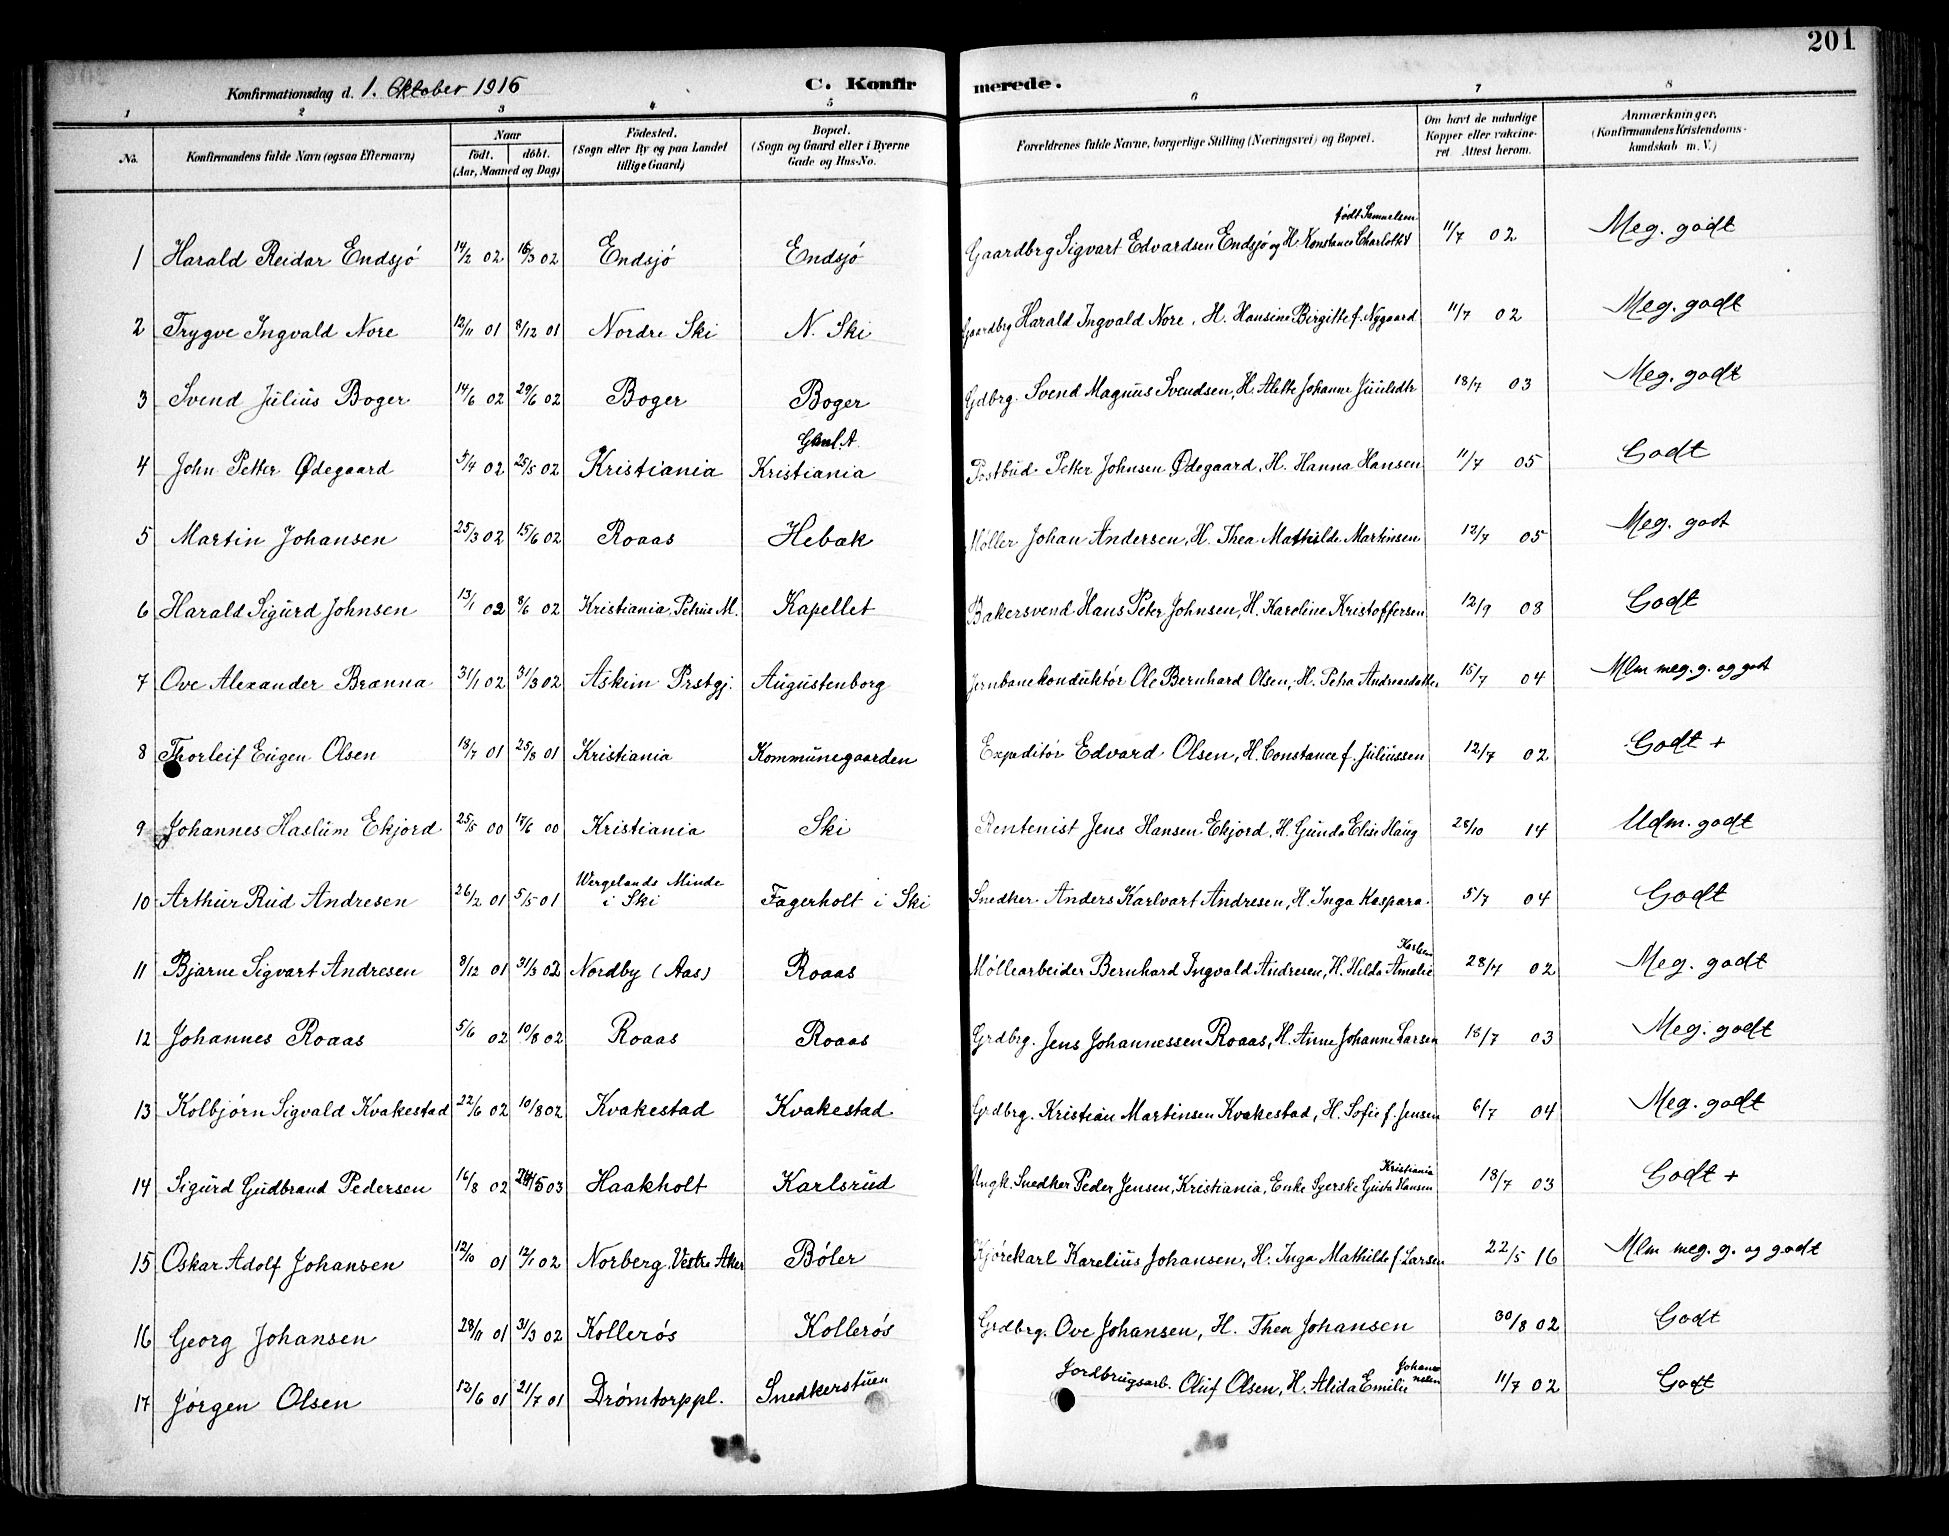 201
Konfirmationsdag d. 1. Oktober 1916 C. Konfirmerede.
1 2 3 4 5 6 7 8
No. Konfirmandens fulde Navn (ogsaa Efternavn) Naar født. døbt. (Aar, Maaned og Dag) Fødested. (Sogn eller By og paa Landet tillige Gaard) Bopæl. (Sogn og Gaard eller i Byerne Gade og Hus-No. Forældrenes fulde Navne, borgerlige Stilling (Næringsvei) og Bopæl. Om havt de naturlige Kopper eller vakcineret. Attest herom. Anmærkninger. (Konfirmandens Kristendomskundskab m. V.)
1 Harald Reidar Endsjó 14/2 02 16/3 02 Endsjó Endsjó Gaardbrg Sigvart Edvardsen Endsjó og H. Konstance Charlotte født Samuelsen 11/7 02 Meg. godt
2 Trygve Ingvald Nore 12/11 01 8/12 01 Nordre Ski N. Ski Gaardbrg Harald Ingvald Nore, H. Hansine Birgitte f. Nygaard 11/7 02 Meg. godt
3 Svend Julius Boger 14/6 02 29/6 02 Boger Boger Gdbrg. Svend Magnus Svendsen, H. Alette Johanne Juulsdtr 18/7 03 Meg. godt
4 John Petter Ødegaard 5/4 02 25/5 02 Kristiania Kristiania Postbud Petter Johnsen Ødegaard, H. Hanna Hansen 11/7 05 Godt
5 Martin Johansen 25/3 02 15/6 02 Roaas Hebæk Møller Johan Andersen, H. Thea Mathilde Martinsen 12/7 05 Meg. godt
6 Harald Sigurd Johnsen 13/1 02 8/6 02 Kristiania Petrus M. Kapellet Bakersvend Hans Peter Johnsen, H. Karoline Kristoffersen 12/9 08 Godt
7 Ove Alexander Brænna 31/1 02 31/3 02 Askim Prstgj. Augustenborg Jernbanekonduktór Ole Bernhard Olsen, H. Petra Andreasdatter 15/7 04 Mlm meg. g. og godt
8 Thorleif Eugen Olsen 18/7 01 25/8 01 Kristiania Kommunegaarden Expeditór Edvard Olsen, H. Constance f. Juliussen 12/7 02 Godt +
9 Johannes Haslum Ekjord 25/5 00 17/6 00 Kristiania Ski Rentenist Jens Hansen Ekjord, H. Gunda Elise Haug 28/10 14 Udm. godt
10 Arthur Rud Andresen 26/2 01 5/5 01 Wergelands Minde i Ski Fagerholt i Ski Snedker Anders Karlvart Andresen, H. Inga Kaspara 5/7 04 Godt
11 Bjarne Sigvart Andresen 8/12 01 31/3 02 Nordby (Aas) Roaas Møllearbeider Bernhard Ingvald Andresen, H. Hilda Amalie Karlsen 28/7 02 Meg. godt
12 Johannes Roaas 5/6 02 10/8 02 Roaas Roaas Grdbrg. Jens Johannessen Roaas, H. Anne Johanne Larsen 18/7 03 Meg. godt
13 Kolbjørn Sigvald Kvakestad 22/6 02 10/8 02 Kvakestad Kvakestad Grdbrg. Kristian Martinsen Kvakestad, H. Sofie f. Jensen 6/7 04 Meg. godt
14 Sigurd Gudbrand Pedersen 16/8 02 03 Haakholt Karlsrud Ungk. Snedker Peder Jensen, Kristiania, Enke Syerske Gusta Hansen Kristiania 18/7 03 Godt +
15 Oskar Adolf Johansen 12/10 01 12/1 02 Norberg. Vestre Aker Bóler Kjórekarl Karelius Johansen, H. Inga Mathilde f. Larsen 22/5 16 Mlm meg. g. og godt
16 Georg Johansen 28/11 01 31/3 02 Kollerós Kollerós Grdbrg. Ove Johansen, H. Thea Johansen 30/8 02 Godt
17 Jørgen Olsen 12/6 01 21/7 01 Drømtorppl. Snedkerstuen Jordbrugsarb. Oluf Olsen, H. Alida Emilie 11/7 02 Godt